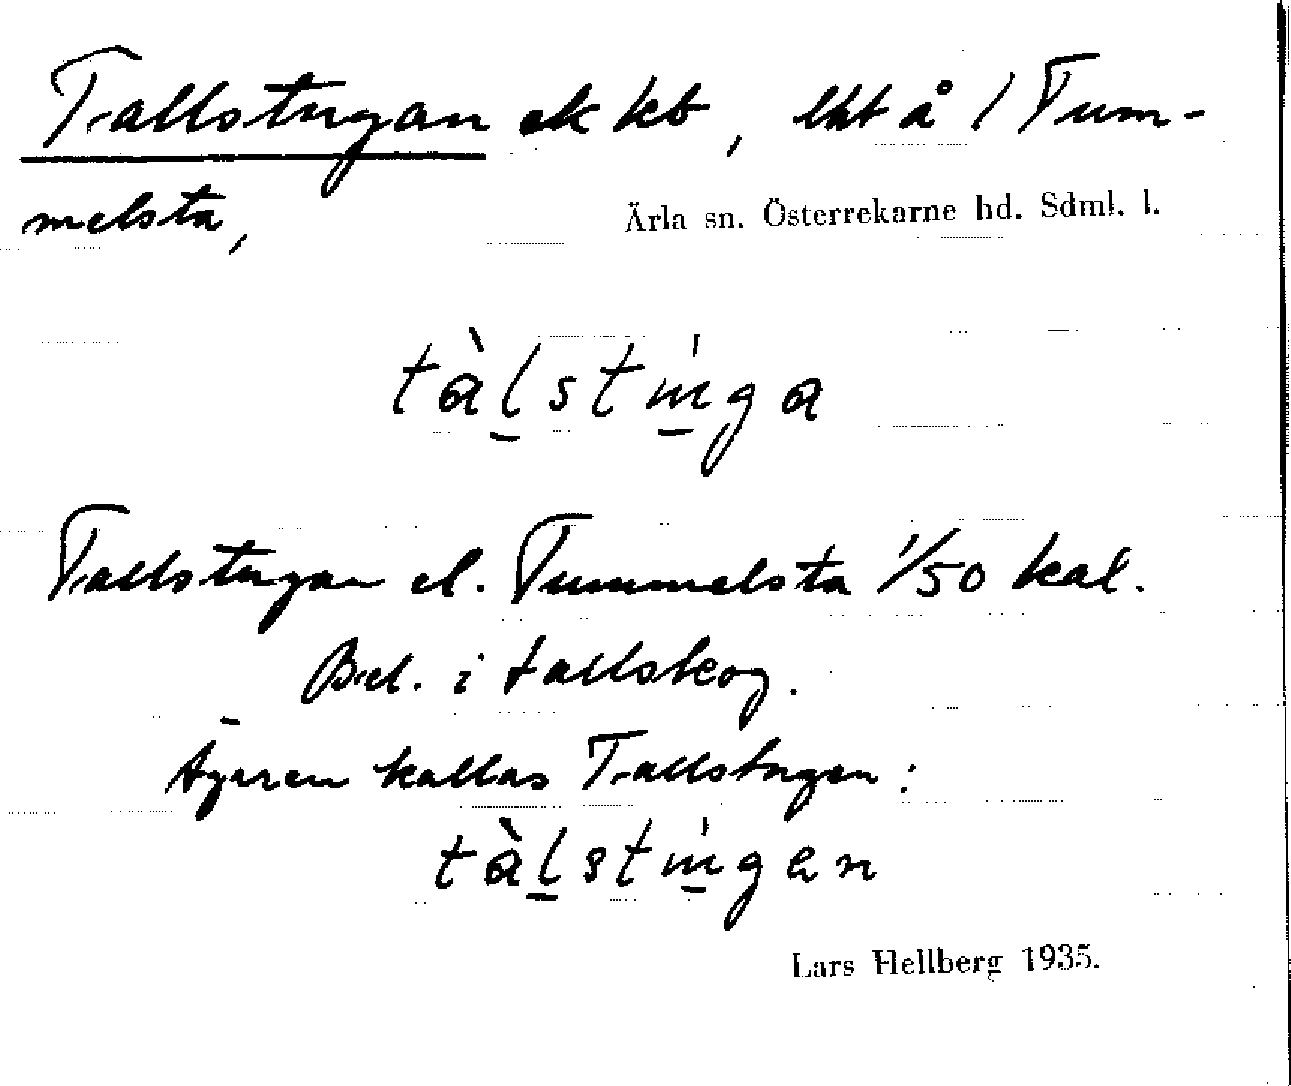 Tallstugan ek kb, lht å 1 Tum-
melsta,
Ärla sn. Österrekarne hd. Sdml. l.
tàlstúga
Tallstugan el. Tummelsta 1/50 kal.
Bel. i tallskog.
Ägaren kallas Tallstugen:
tàlstúgen
Lars Hellberg 1935.